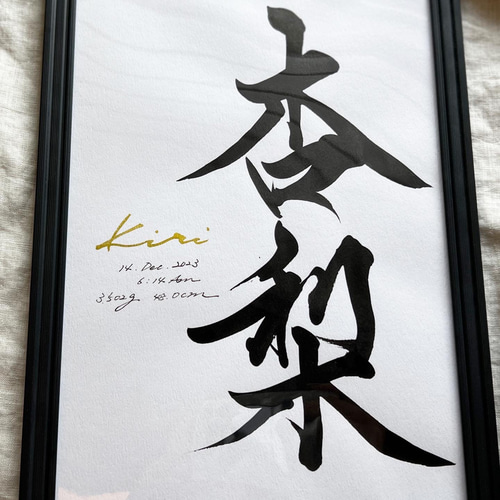 杏梨
Kiri
14. Dec. 2023
6:14 Am
3502g 48.0cm